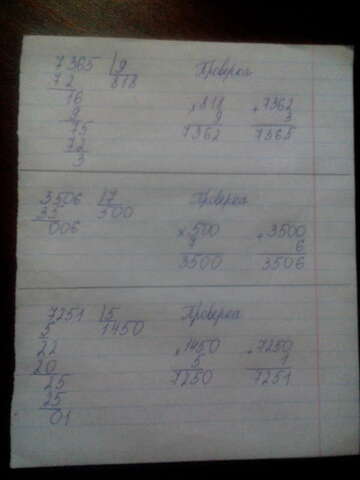 7365 | 9
72 818
16
9
75
72
3
Проверка
×818
9
7362
+7362
3
7365
3506 | 7
35 500
006
Проверка
×500
7
3500
+3500
6
3506
7251 | 5
5 1450
22
20
25
25
01
Проверка
×1450
5
7250
+7250
1
7251